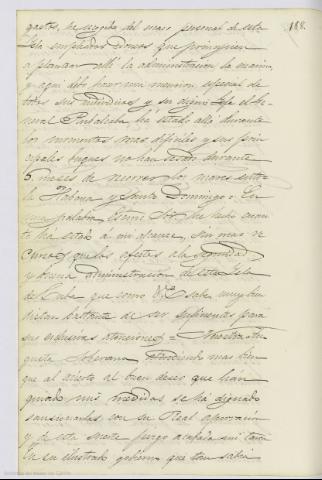 188.
gastos, he elegido del mismo personal de esta
Isla empleados idoneos que principien
a plantear allí la administracion. La marina,
y aqui debo hacer una mencion especial de
todos sus individuos y su digno Jefe el Ge-
neral Rubalcaba, ha estado allí durante
los momentos mas dificiles y sus prin-
cipales buques no han cesado durante
5 meses de recorrer los mares entre
la Habana y Santo Domingo. En
una palabra, Excmo. Sor. he hecho cuanto
to ha estado a mi alcance, sin mas re-
cursos que los afectos a la seguridad
y buena administracion de esta Isla
de Cuba que como V.E. sabe muy bien
distan bastante de ser suficientes para
sus esclusivas atenciones = Nuestra Au-
gusta Soberana, atendiendo mas bien
que al acierto al buen deseo que han
guiado mis medidas se ha dignado
sancionarlas con su Real aprovacion
y de esta suerte juzgo acabada mi tarea
en su ilustrado gobierno que tan sabia